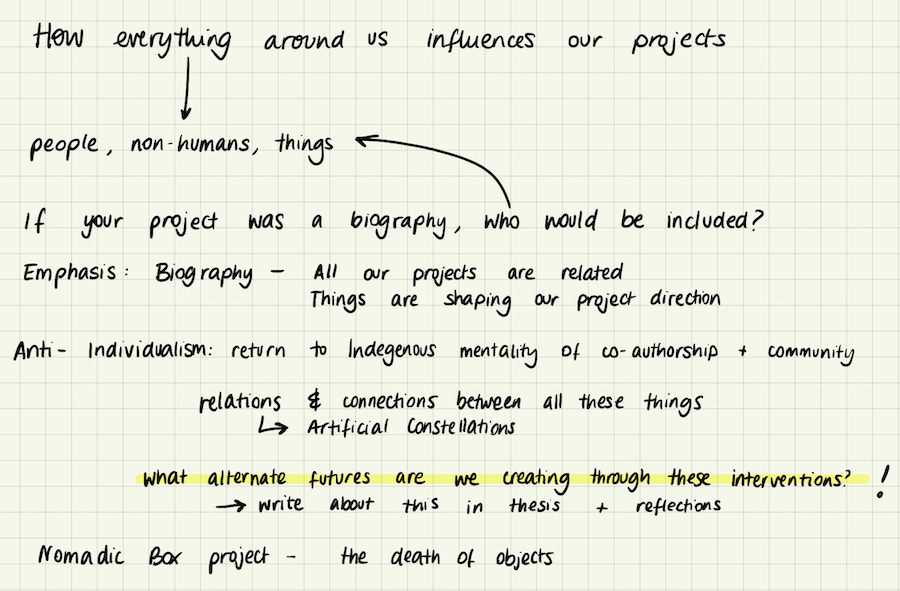 How everything around us influences our projects
people, non-humans, things
If your project was a biography, who would be included?
Emphasis: Biography - All our projects are related
Things are shaping our project direction
Anti-Individualism: return to Indegenous mentality of co-authorship + community
relations & connections between all these things
↳ Artificial Constellations
what alternate futures are we creating through these interventions? !
→ write about this in thesis + reflections
Nomadic Box project - the death of objects